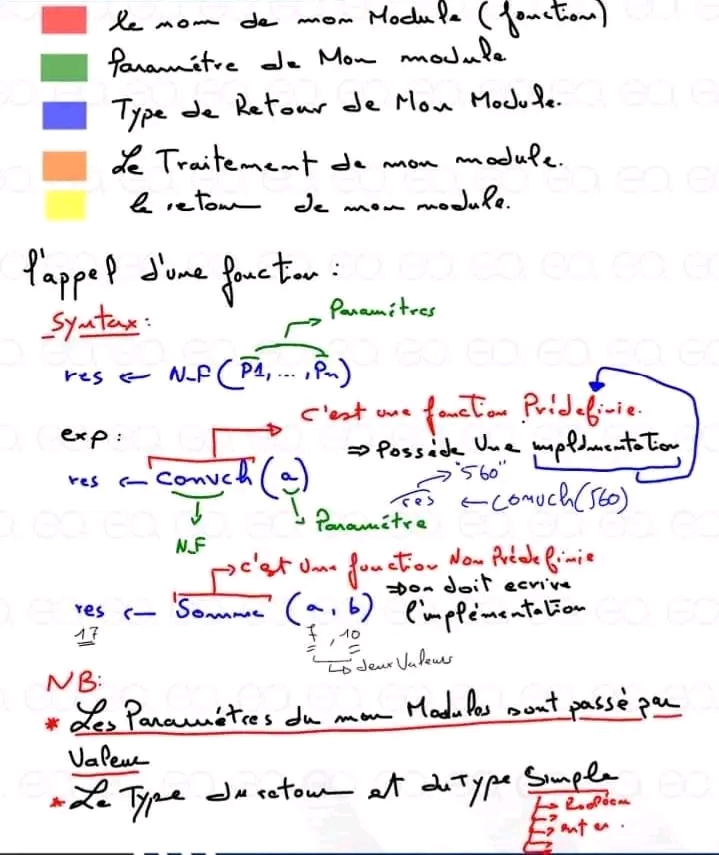 le nom de mon Module (fonction)
Paramétre de Mon module
Type de Retour de Mon Module.
Le Traitement de mon module.
le retour de mon module.
l'appel d'une fonction :
Syntax :
Paramétres
res ← N_F (P1, ... , Pn)
c'est une fonction Prédefinie.
exp :
⇒ Posséde Une implémentation
res ← convch (a)
"560"
res ← convch(560)
Paramétre
N_F
c'est Une fonction Non Prédefinie
⇒ on doit ecrire
res ← Somme (a, b) l'implémentation
17 7 , 10
deux Valeurs
NB:
* Les Paramétres du mon Modules sont passé par
Valeur
* Le Type du retour et de Type Simple
entier.